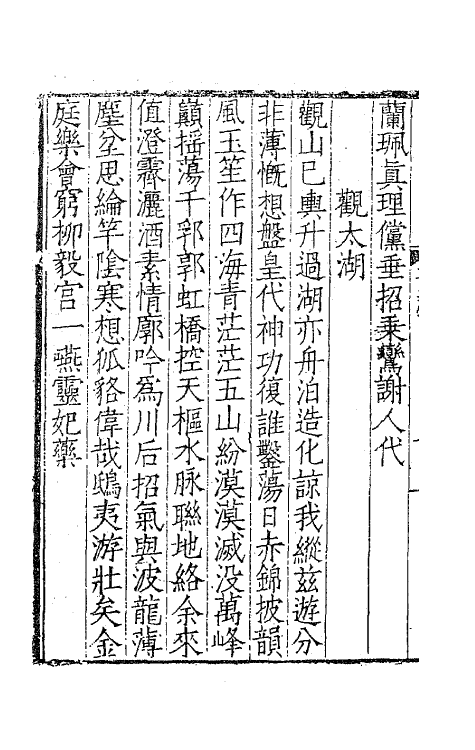 蘭珮真理儻垂招乗鸞謝人代
觀太湖
觀山已輿升過湖亦舟泊造化諒我縱兹遊分
非薄慨想盤皇代神功復誰鑿蕩日赤錦披韻
風玉笙作四海青茫茫五山紛漠漠滅没萬峰
巔揺蕩千郛郭虹橋控天樞水脉聯地絡余來
值澄霽灑酒素情廓吟爲川后招氣與波龍薄
塵坌思綸竿陰寒想狐貉偉哉鴟夷游壯矣金
庭樂會窮柳毅宫一燕靈妃藥